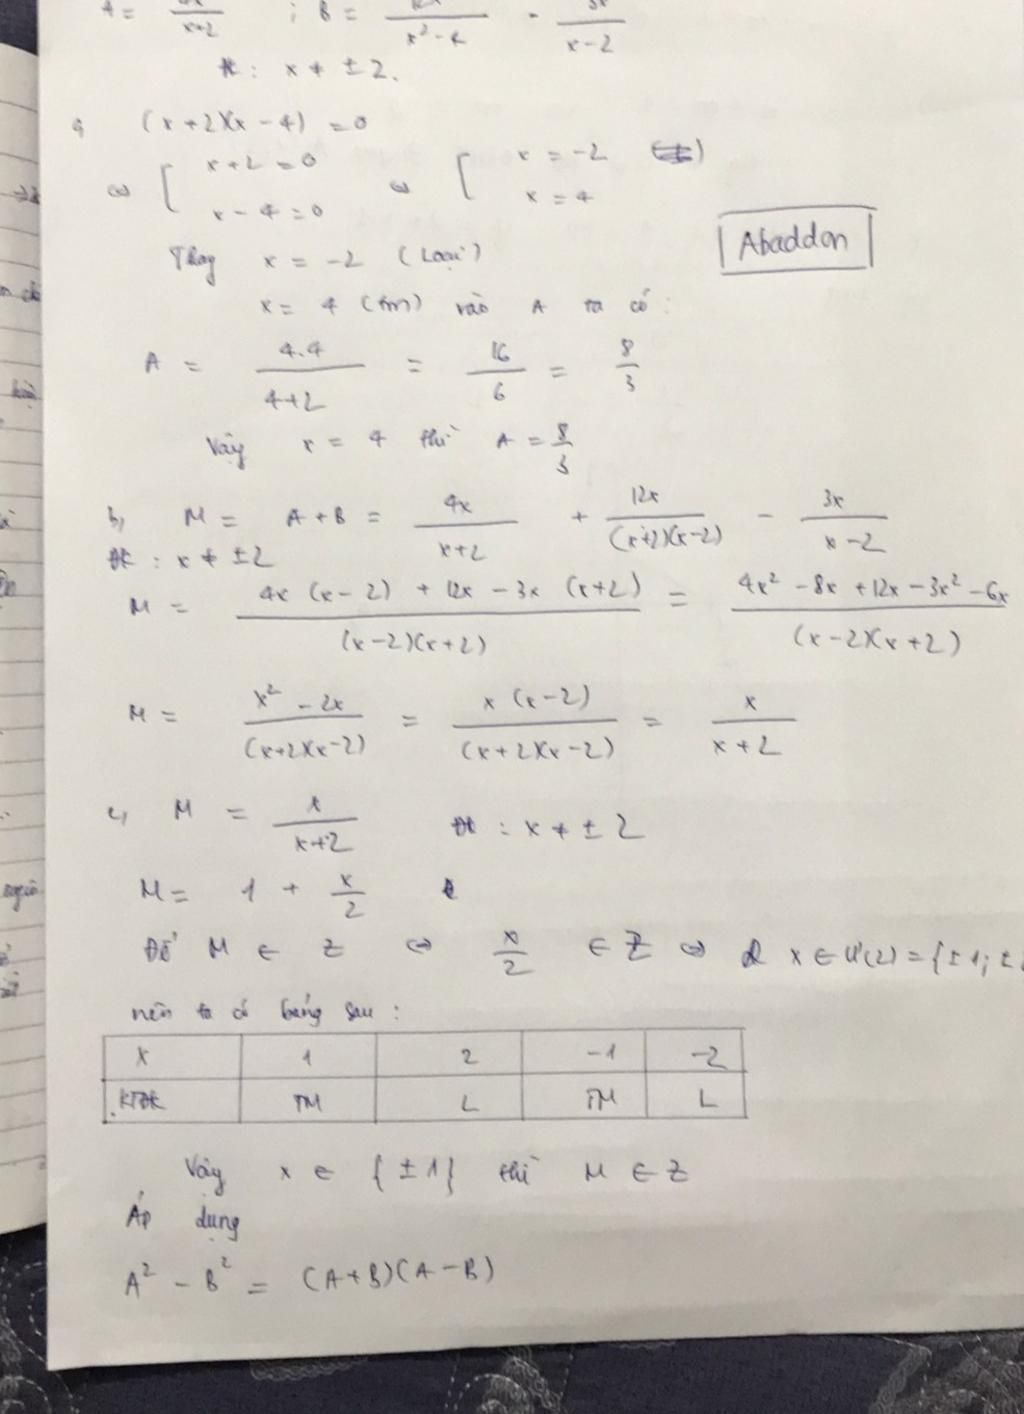 A = 4x/x+2 ; B = 12x/x²-4 - 3x/x-2
ĐK: x ≠ ±2.
a, (x+2)(x-4) = 0
⇔ [ x+2 = 0 ⇔ [ x = -2
x-4 = 0 x = 4
Abaddon
Thay x = -2 (Loại)
x = 4 (tm) vào A ta có:
A = 4.4/4+2 = 16/6 = 8/3
Vậy x = 4 thì A = 8/3
b, M = A+B = 4x/x+2 + 12x/(x+2)(x-2) - 3x/x-2
ĐK: x ≠ ±2
M = 4x(x-2) + 12x - 3x(x+2)/(x-2)(x+2) = 4x² - 8x + 12x - 3x² - 6x/(x-2)(x+2)
M = x² - 2x/(x+2)(x-2) = x(x-2)/(x+2)(x-2) = x/x+2
c, M = x/x+2 ĐK: x ≠ ±2
M = 1 + x/2
Để M ∈ Z ⇔ x/2 ∈ Z ⇔ x ∈ Ư(2) = {±1; ±
nên ta có bảng sau:
x 1 2 -1 -2
KTĐK TM L TM L
Vậy x ∈ {±1} thì M ∈ Z
Áp dụng
A² - B² = (A+B)(A-B)